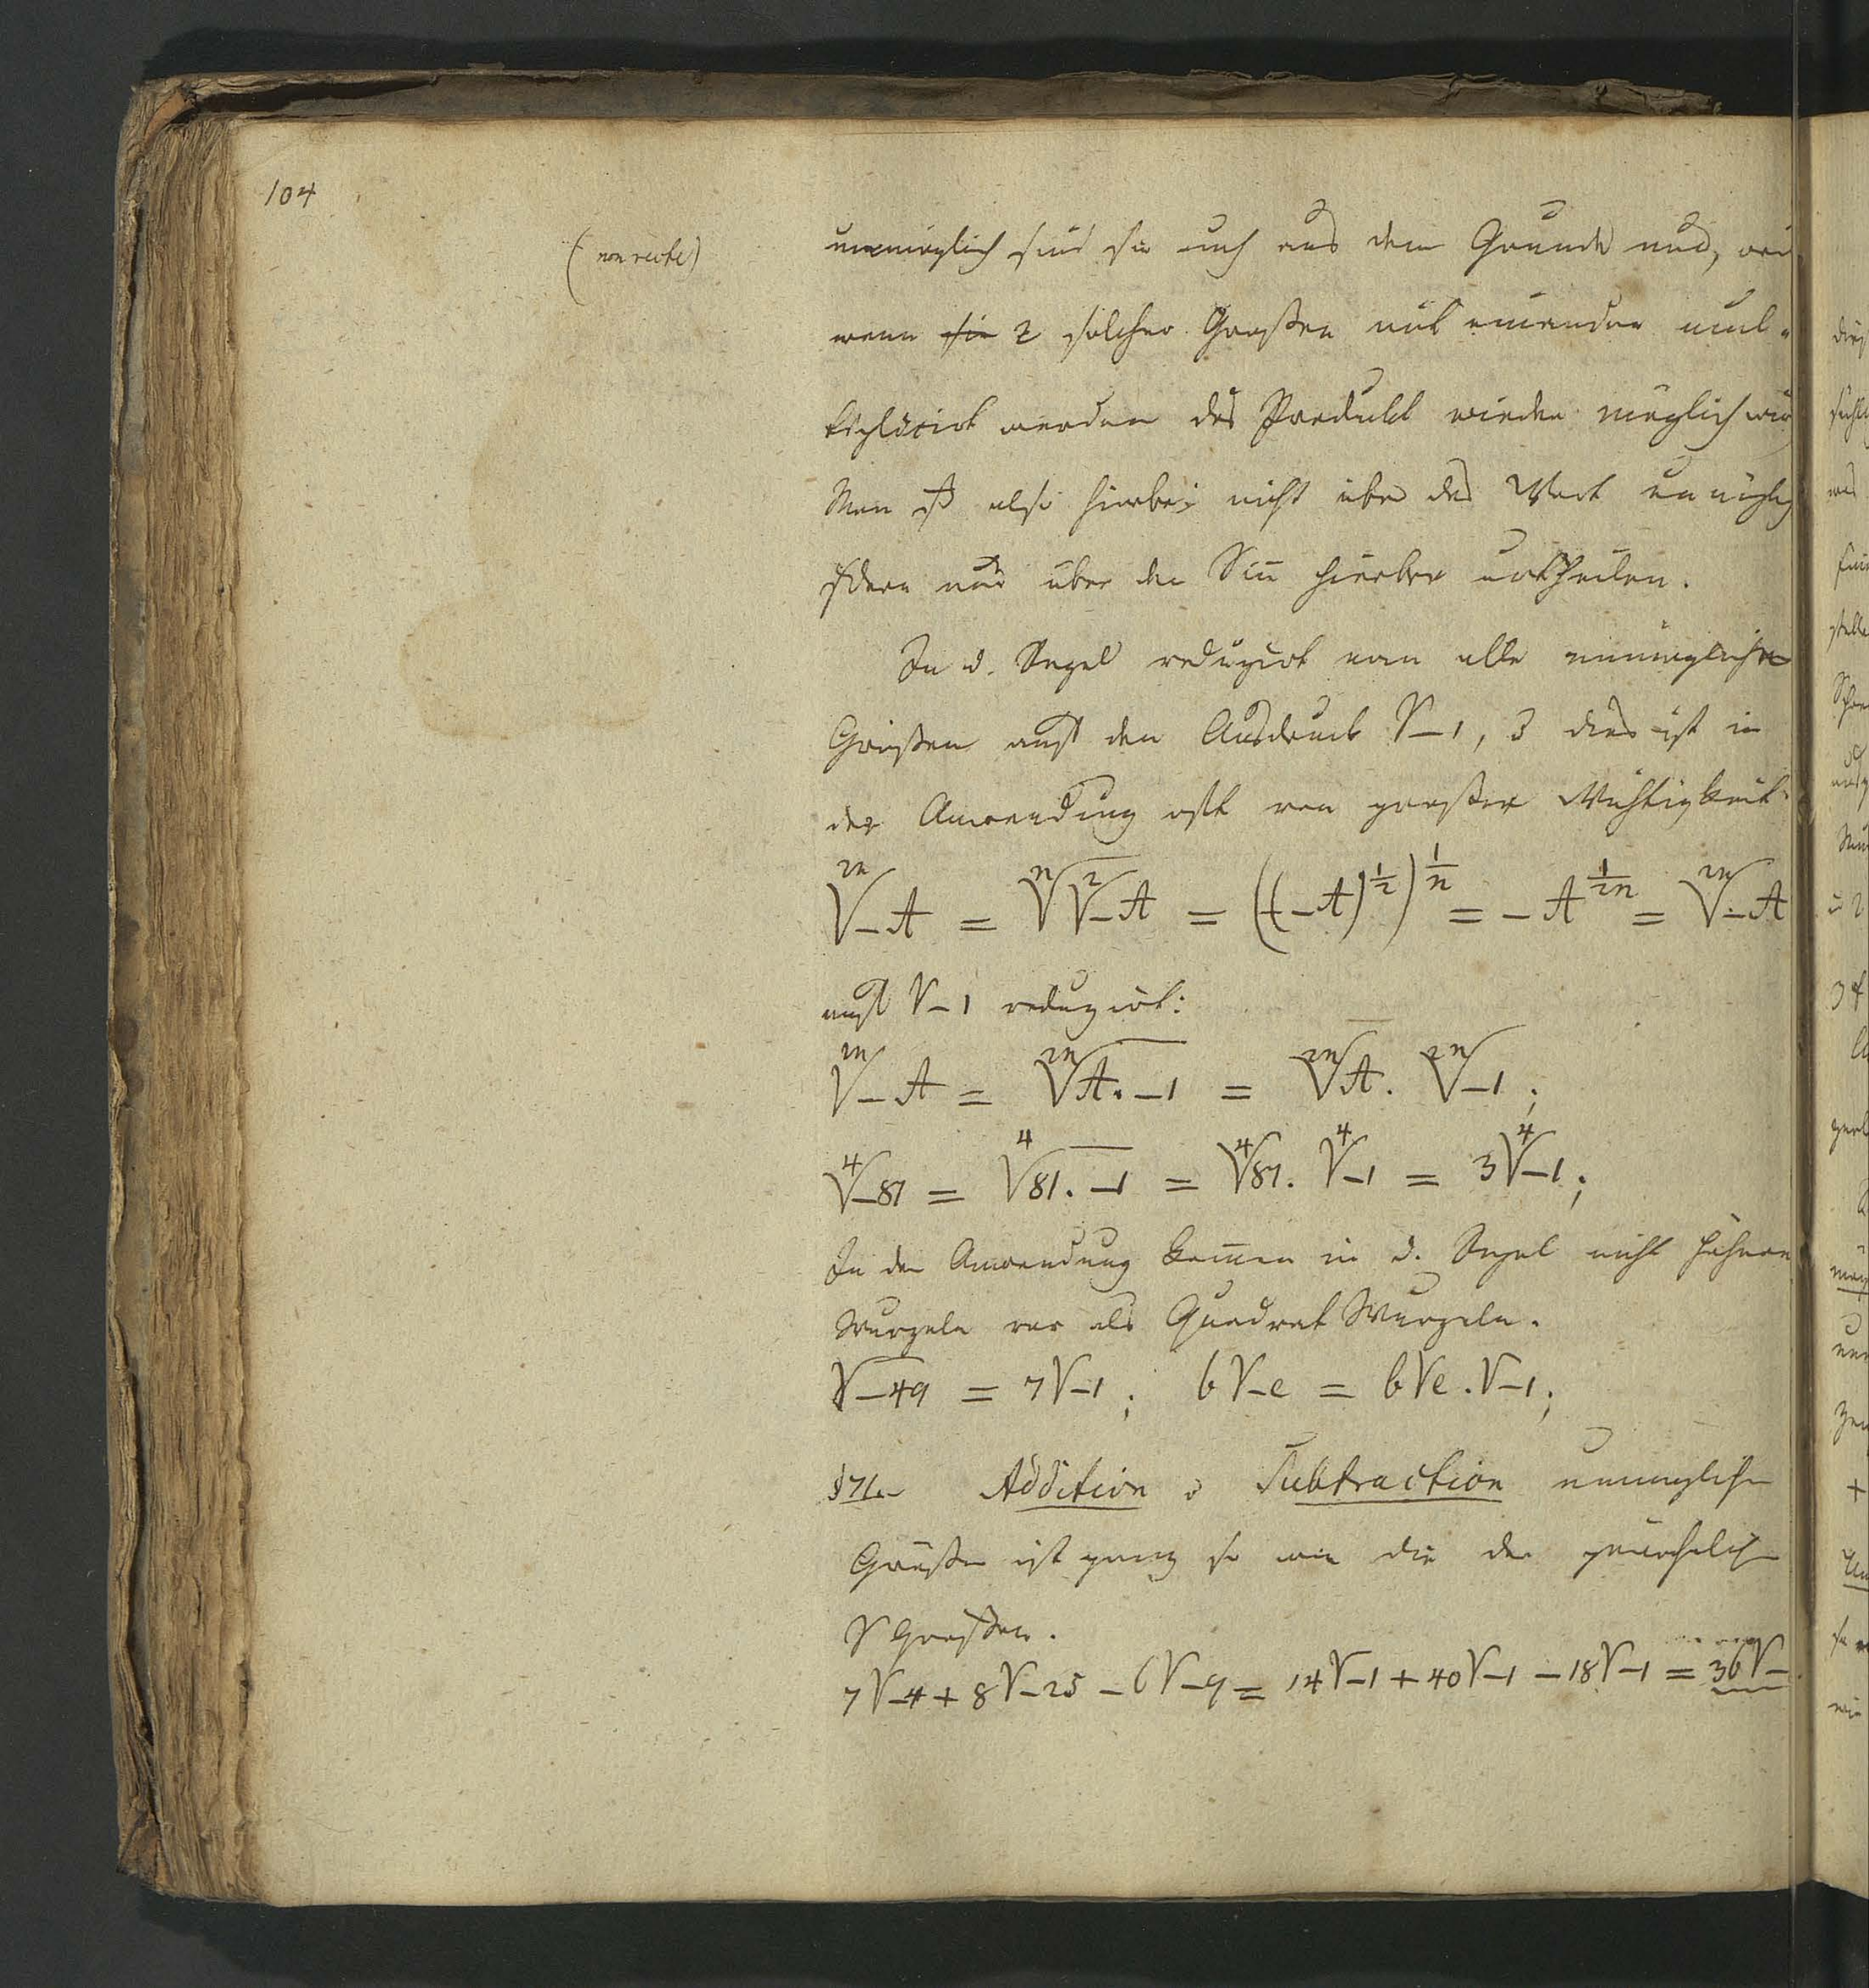 104
(non recte)
unmöglich sind sie auch aus dem Grunde nicht, weil
wenn sie 2 solcher Großen mit einander mul-
tiplicirt werden das Produkt wieder möglich wird
Man ist also hierbei nicht über das Wort unmöglich
sondern nur über den Sin̄ hierbei urtheilen.
In d. Regel reduzirt man alle unmöglichen
Größen auf den Ausdruck √-1, & dies ist in
der Anwendung oft von großer Wichtigkeit.
²ⁿ√-A = ⁿ√²√-A = ((-A)^½)^1/n = -A^1/2n = ²ⁿ√-A
auf √-1 reduzirt:
²ⁿ√-A = ²ⁿ√A.-1 = ²ⁿ√A. ²ⁿ√-1;
⁴√-81 = ⁴√81.-1 = ⁴√81. ⁴√-1 = 3⁴√-1;
In der Anwendung kom̄en in d. Regel nicht höhere
Wurzeln vor als Quadrat Wurzeln.
√-49 = 7√-1; b√-e = b√e.√-1;
§71. Addition & Subtraction unmöglicher
Größen ist ganz so wie die der gewöhnlichen
√ Großen.
7√-4 + 8√-25 - 6√-9 = 14√-1 + 40√-1 - 18√-1 = 36√-